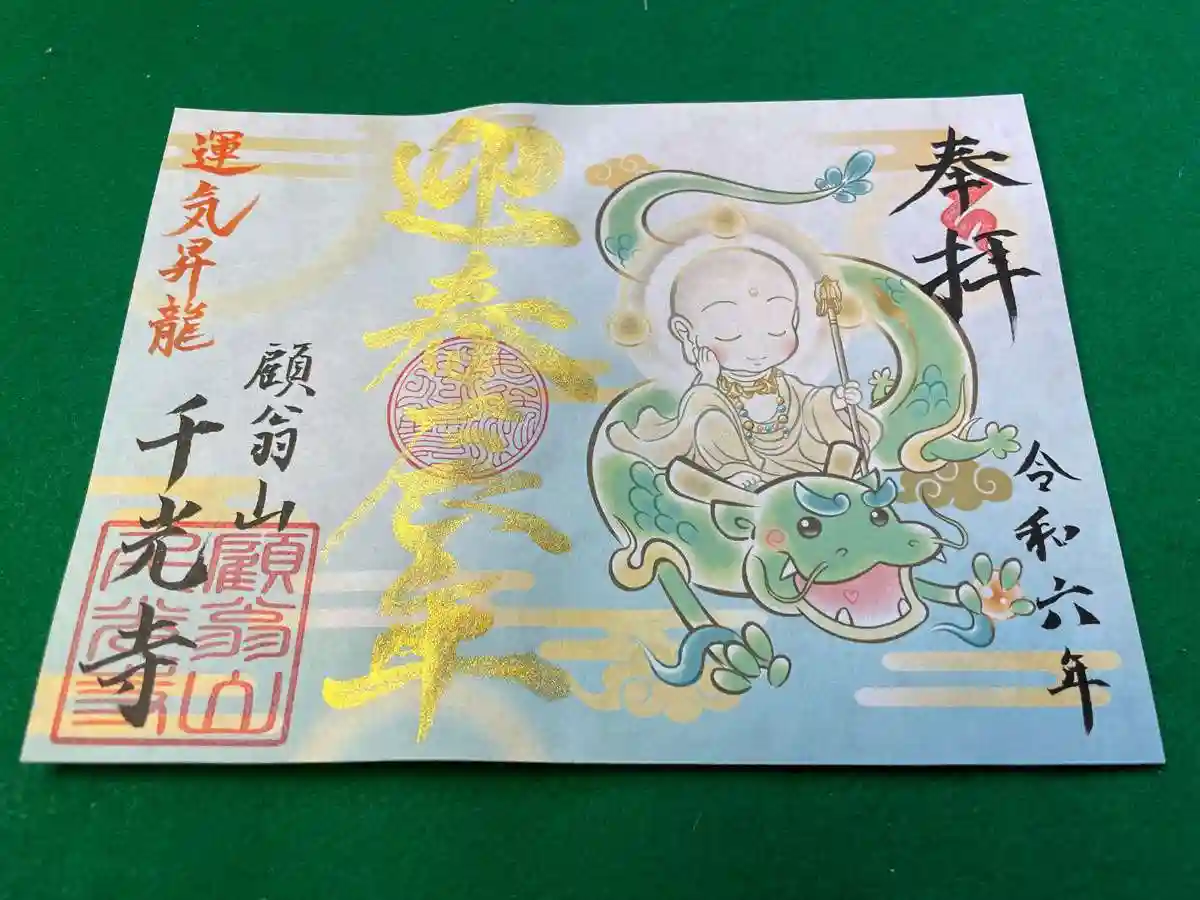 奉拝
令和六年
迎春
年
顧翁山
千光寺
運気昇龍
顧翁山
千光寺